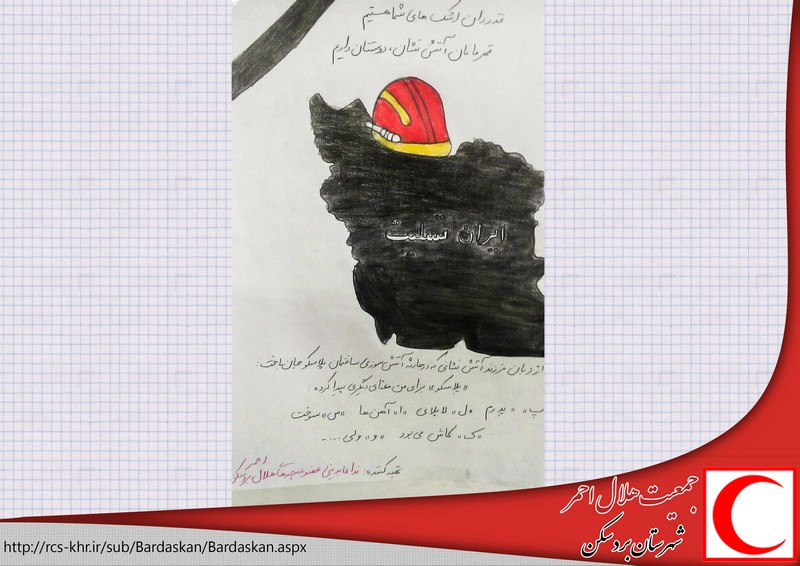 قدردان اشک های شما هستیم
قهرمانان آتش نشان، دوستان داریم
ایران تسلیت
از زبان فرزند آتش نشانی که در حادثه آتش سوزی ساختمان پلاسکو جان باخت:
«پلاسکو» برای من معنای دیگری پیدا کرده:
«پ» پدرم «ل» لابلای «ا» آهن ها «س» سوخت
«ک» کاش می بود «و» ولی ....
تهیه کننده: عضو غنچه های هلال احمر
جمعیت هلال احمر
شهرستان بردسکن
http://rcs-khr.ir/sub/Bardaskan/Bardaskan.aspx